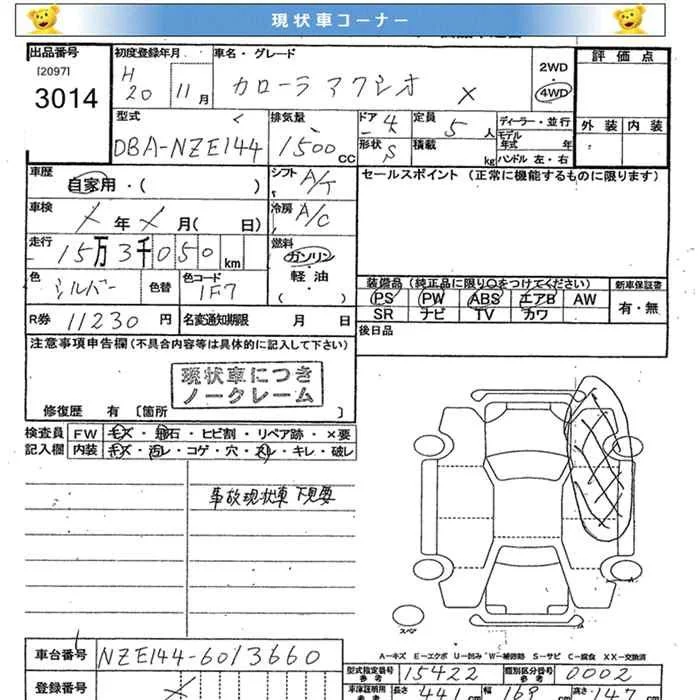 現状車コーナー
出品番号 初度登録年月 車名・グレード 2WD 評価点
[2097] H 20 11月 カローラアクシオ X 4WD
3014
型式 排気量 ドア 4 定員 5人 ディーラー・並行 外装 内装
DBA-NZE144 1500cc 形状 S 積載 kg モデル年式 年
ハンドル 左・右
車歴 シフト A/T セールスポイント (正常に機能するものに限ります)
自家用・( )
車検 X年X月( 日) 冷房 A/C
走行 15万3千050km 燃料 ガソリン・軽油・( )
色 シルバー 色替 色コード 1F7 装備品(純正品に限り○をつけてください) 新車保証書
PS PW ABS エアB AW 有・無
R券 11230円 名変通知期限 月 日 SR ナビ TV カワ
注意事項申告欄(不具合内容等は具体的に記入して下さい) 後日品
現状車につき
ノークレーム
修復歴 有 [箇所 ]
検査員 FW キズ・飛石・ヒビ割・リペア跡・×要
記入欄 内装 キズ・汚レ・コゲ・穴・スレ・キレ・破レ
事故現状車 下見要
スペア
A-キズ E-エクボ U-凹み W-補修跡 S-サビ C-腐食 XX-交換済
車台番号 NZE144-6013660 型式指定番号 参考 15422 類別区分番号 参考 0002
登録番号 車庫証明用 参考 長さ 441cm 幅 169cm 高さ 147cm